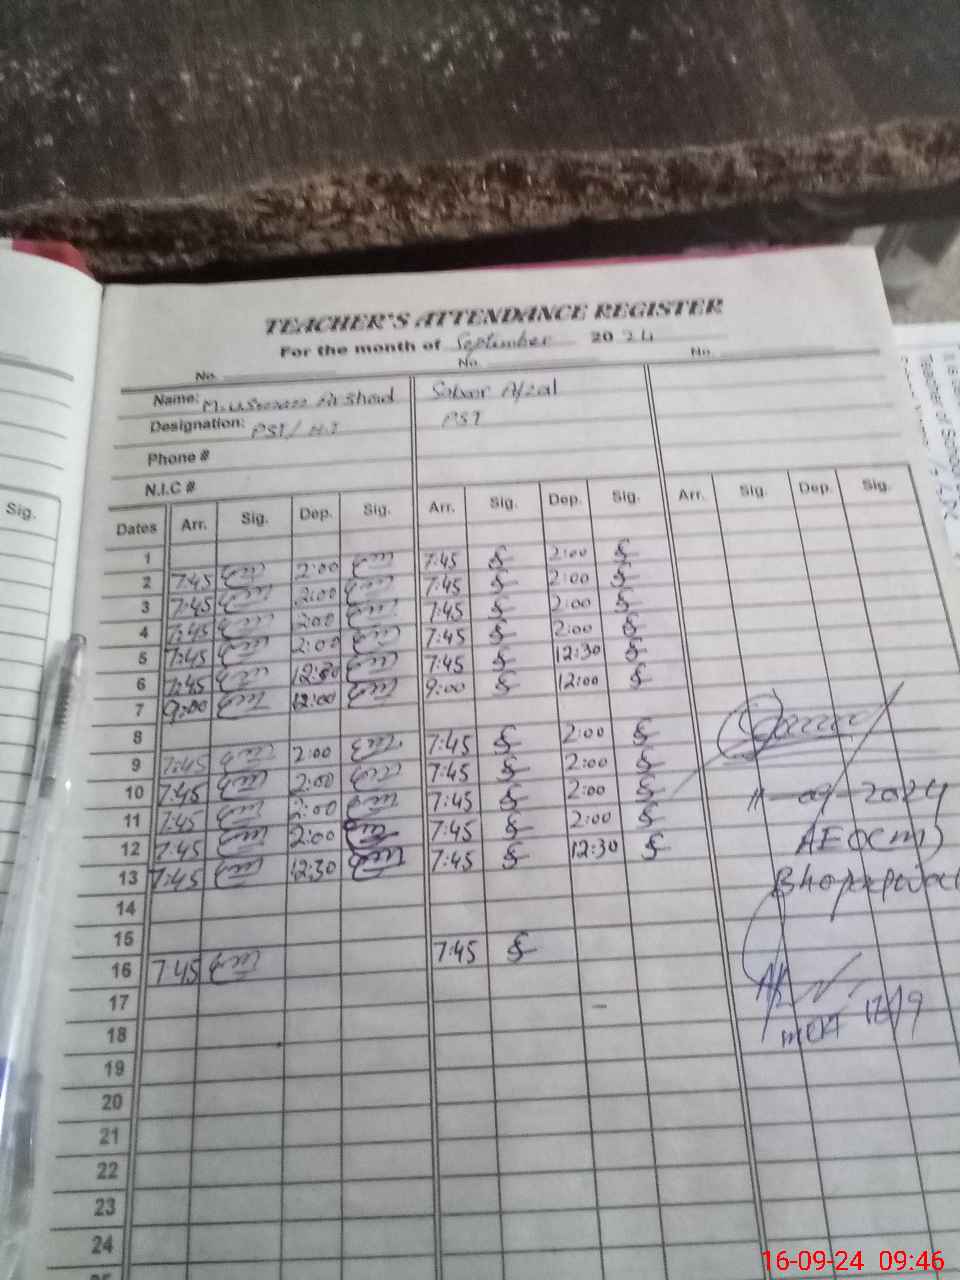 TEACHER'S ATTENDANCE REGISTER
For the month of September 2024
No. No. No.
Name: Arshad Afzal
Designation: PST / H.T PST
Phone #
N.I.C #
Sig. Dates Arr. Sig. Dep. Sig. Arr. Sig. Dep. Sig. Arr. Sig. Dep. Sig.
1
2 7:45 2:00 7:45 2:00
3 7:45 2:00 7:45 2:00
4 7:45 2:00 7:45 2:00
5 7:45 2:00 7:45 2:00
6 7:45 12:30 7:45 12:30
7 9:00 12:00 9:00 12:00
8
9 7:45 2:00 7:45 2:00
10 7:45 2:00 7:45 2:00
11 7:45 2:00 7:45 2:00
12 7:45 2:00 7:45 2:00
13 7:45 12:30 7:45 12:30
14
15
16 7:45 7:45
17
18
19
20
21
22
23
24
25
11-09-2024
AEO(m)
12/9
Teacher of School
16-09-24 09:46